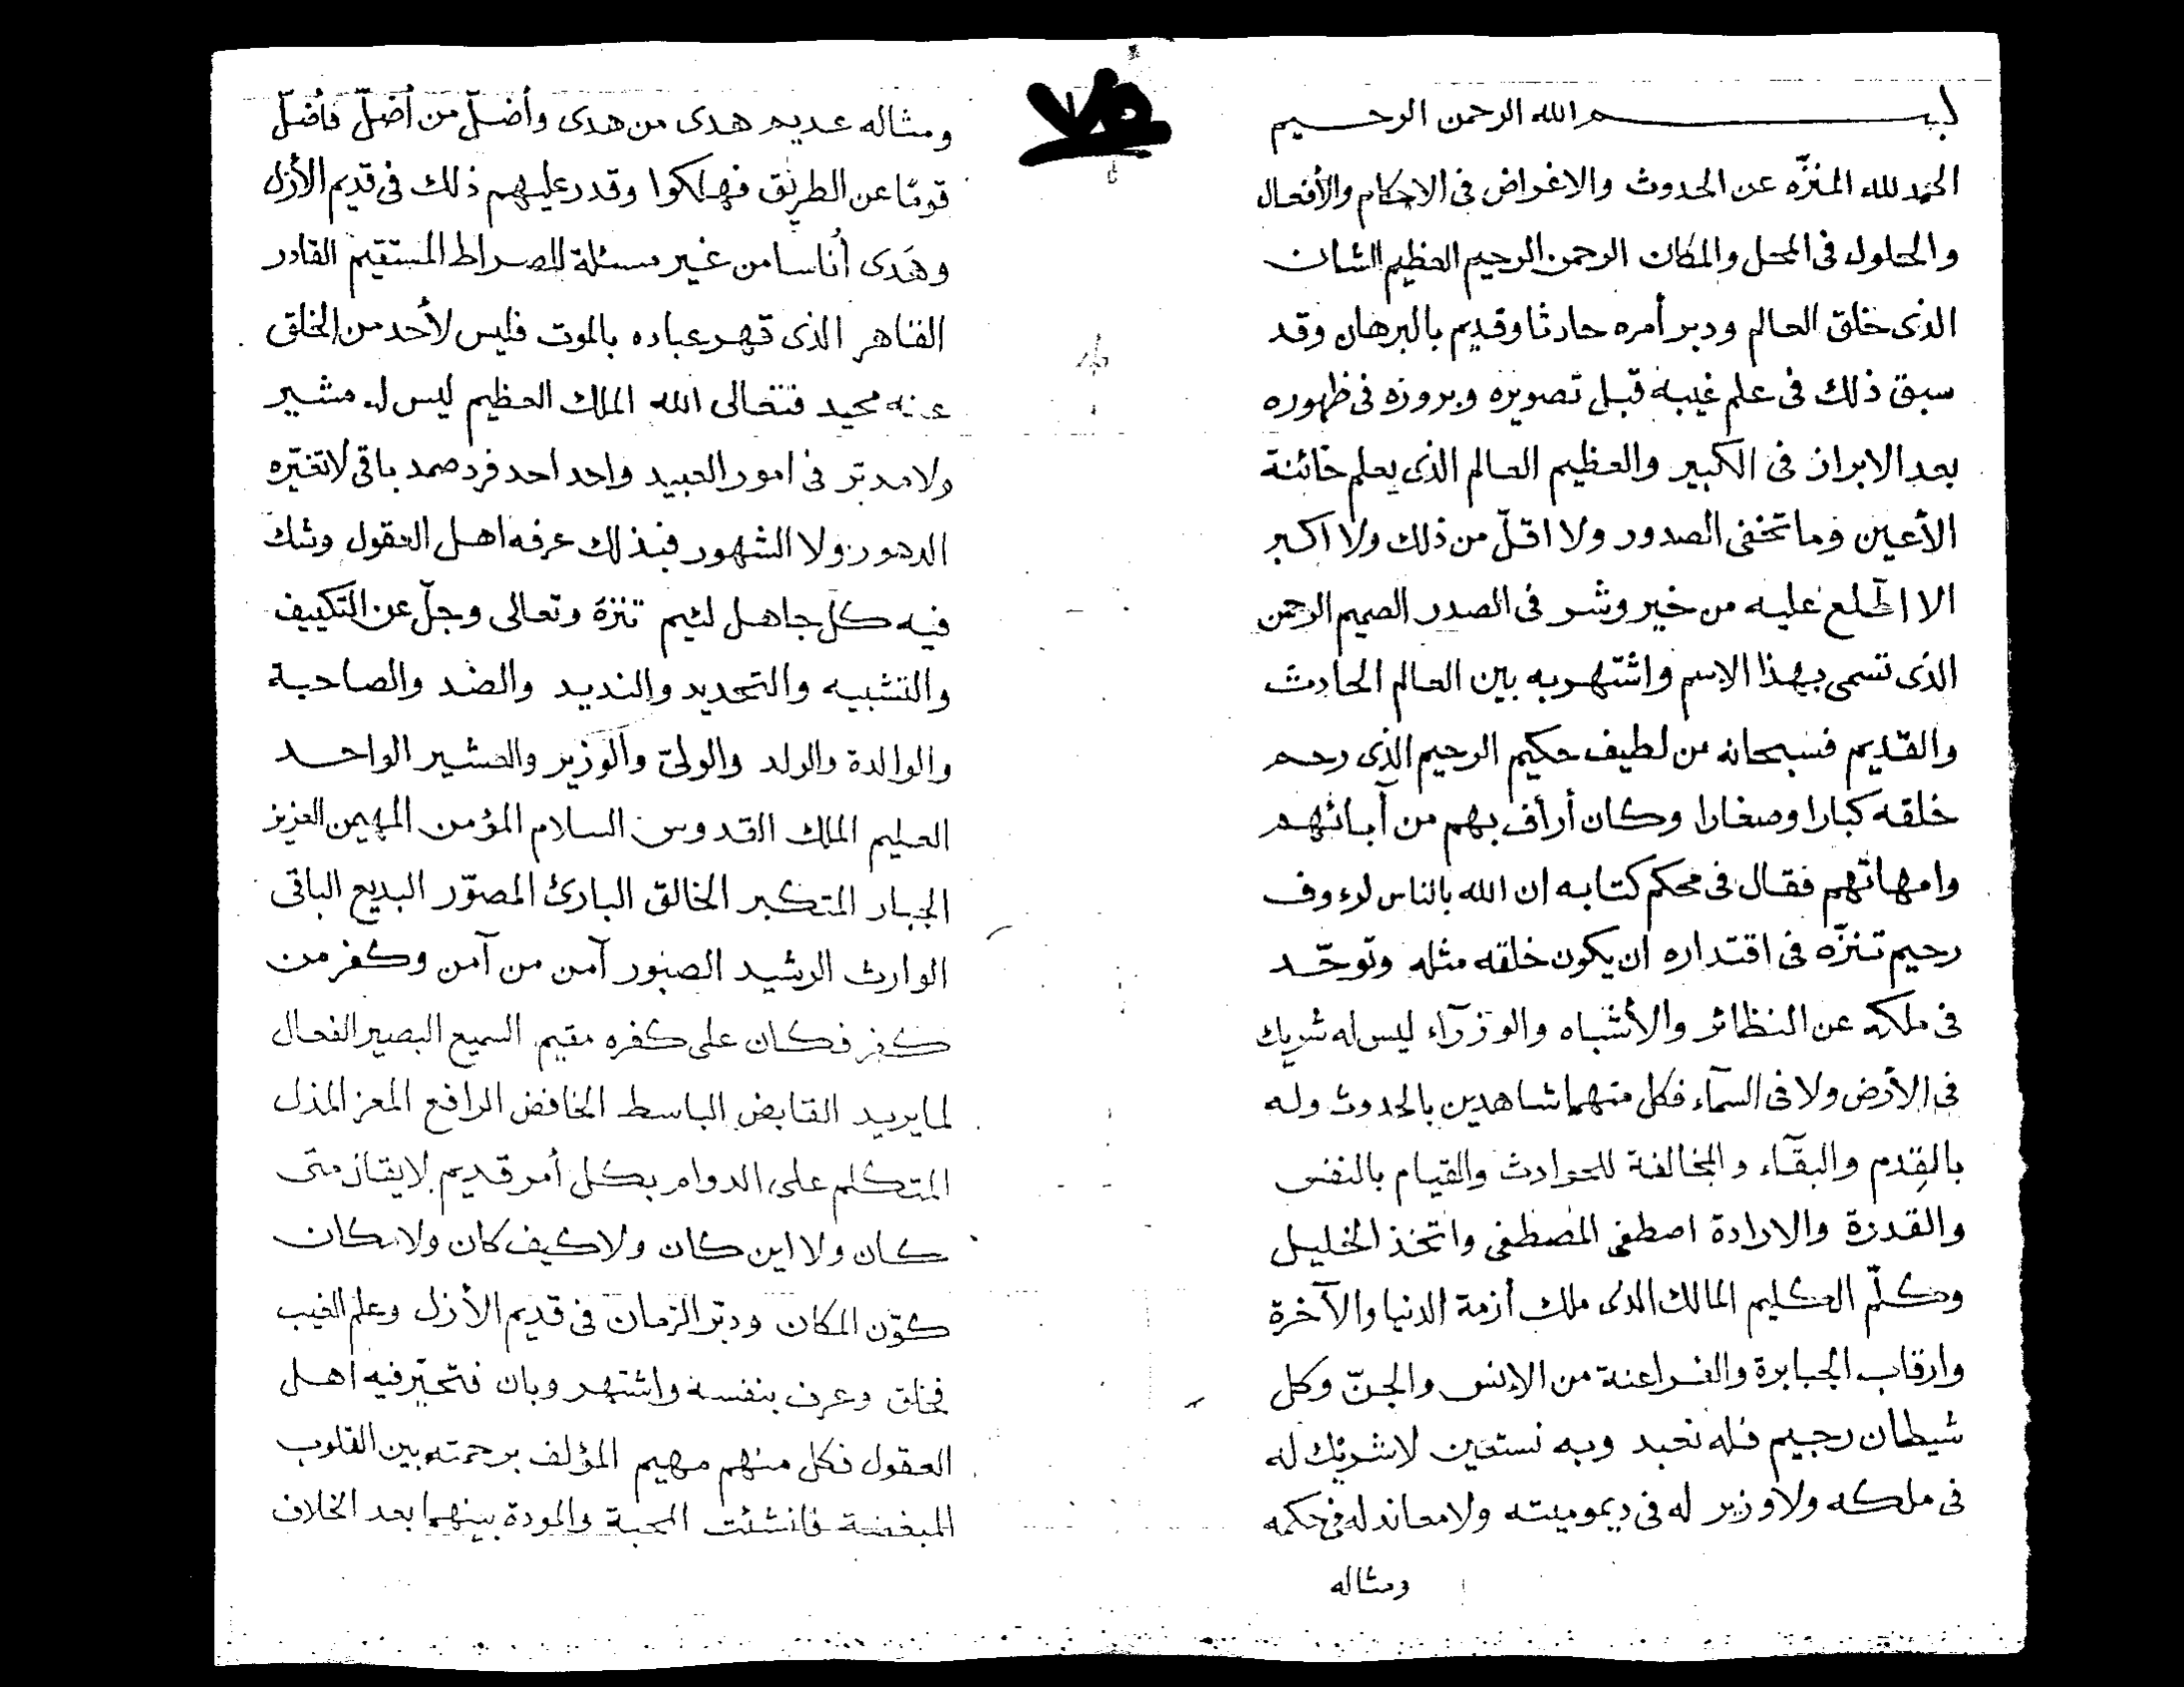 بسم الله الرحمن الرحيم
الحمد لله المنزّه عن الحدوث والاغراض فى الاحكام والأفعال
والحلول فى المحل والمكان الرحمن الرحيم العظيم الشان
الذى خلق العالم ودبر أمره حادثا وقديم بالبرهان وقد
سبق ذلك فى علم غيبه قبل تصويره وبروزه فى ظهوره
بعد الابراز فى الكبير والعظيم العالم الذى يعلم خائنة
الأعين وما تخفى الصدور ولا اقلّ من ذلك ولا اكبر
الا اطلع عليه من خير وشر فى الصدر الصميم الرحمن
الذى تسمى بهذا الاسم واشتهر به بين العالم الحادث
والقديم فسبحانه من لطيف حكيم الرحيم الذى رحم
خلقه كبارا وصغارا وكان أرأف بهم من آبائهم
وامهاتهم فقال فى محكم كتابه ان الله بالناس لرءوف
رحيم تنزّه فى اقتداره ان يكون خلقه مثله وتوحّد
فى ملكه عن النظائر والأشباه والوزرآء ليس له شريك
فى الأرض ولا فى السمآء فكل منهما شاهدين بالحدوث وله
بالقِدم والبقآء والمخالفة للحوادث والقيام بالنفس
والقدرة والارادة اصطفى المصطفى واتخذ الخليل
وكلّم الكليم المالك الذى ملك أزمة الدنيا والآخرة
وارقاب الجبابرة والفراعنة من الإنس والجنّ وكل
شيطان رجيم فله نعبد وبه نستعين لا شريك له
فى ملكه ولا وزير له فى ديموميته ولا معاند له فى حكمه
ومثاله
ومثاله عديم هدى من هدى وأضلّ من أضلّ فأضلّ
قومًا عن الطريق فهلكوا وقدر عليهم ذلك فى قديم الأزل
وهَدى أُناسا من غير مسئلة للصراط المستقيم القادر
القاهر الذى قهر عباده بالموت فليس لأحد من الخلق
عنه محيد فتعالى الله الملك العظيم ليس له مشير
ولا مدبّر فى امور العبيد واحد احد فرد صمد باقى لا تغيّره
الدهور ولا الشهور فبذلك عرفه اهل العقول وشك
فيه كل جاهل لئيم تنزه وتعالى وجلّ عن التكييف
والتشبيه والتحديد والنديد والضد والصاحبة
والوالدة والولد والولىّ والوزير والعشير الواحد
العليم الملك القدوس السلام المؤمن المهيمن العزيز
الجبار المتكبر الخالق البارئ المصوّر البديع الباقى
الوارث الرشيد الصبور آمن من آمن وكفر من
كفر فكان على كفره مقيم السميع البصير الفعال
لما يريد القابض الباسط الخافض الرافع المعز المذل
المتكلم على الدوام بكل أمر قديم لا يقال متى
كان ولا اين كان ولا كيف كان ولا مكان
كوّن المكان ودبّر الزمان فى قديم الأزل وعلم الغيب
فخلق وعرف بنفسه واشتهر وبان فتحيّر فيه اهل
العقول فكل منهم مهيم المؤلف برحمته بين القلوب
المبغضة فانشئت المحبة والمودة بينهما بعد الخلاف